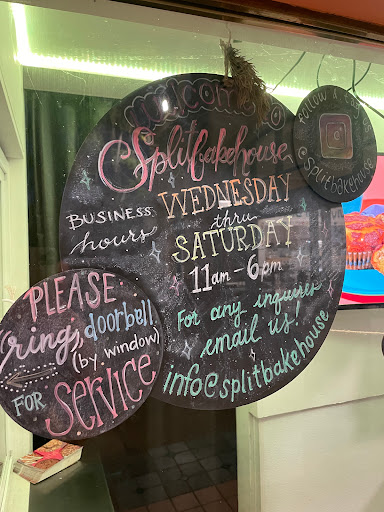 Welcome to
Splitbakehouse
BUSINESS
hours
WEDNESDAY
thru
SATURDAY
11am - 6pm
For any inquiries
email us!
info@splitbakehouse
FOLLOW & TAG US
@splitbakehouse
PLEASE
ring doorbell
(by window)
FOR SERVICE